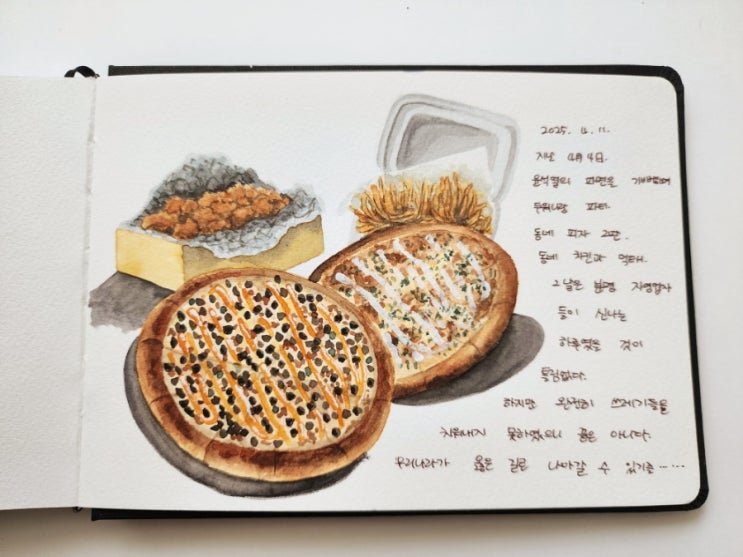 2025. 4. 11.
지난 4月 4日.
윤석열의 파면을 기뻐하며
두위니랑 파티.
동네 피자 2판.
동네 치킨과 먹태.
그날은 분명 자영업자
들이 신나는
하루였을 것이
틀림없다.
하지만 완전히 쓰레기들을
치워내지 못하였으니 끝은 아니다.
우리나라가 옳은 길로 나아갈 수 있기를......